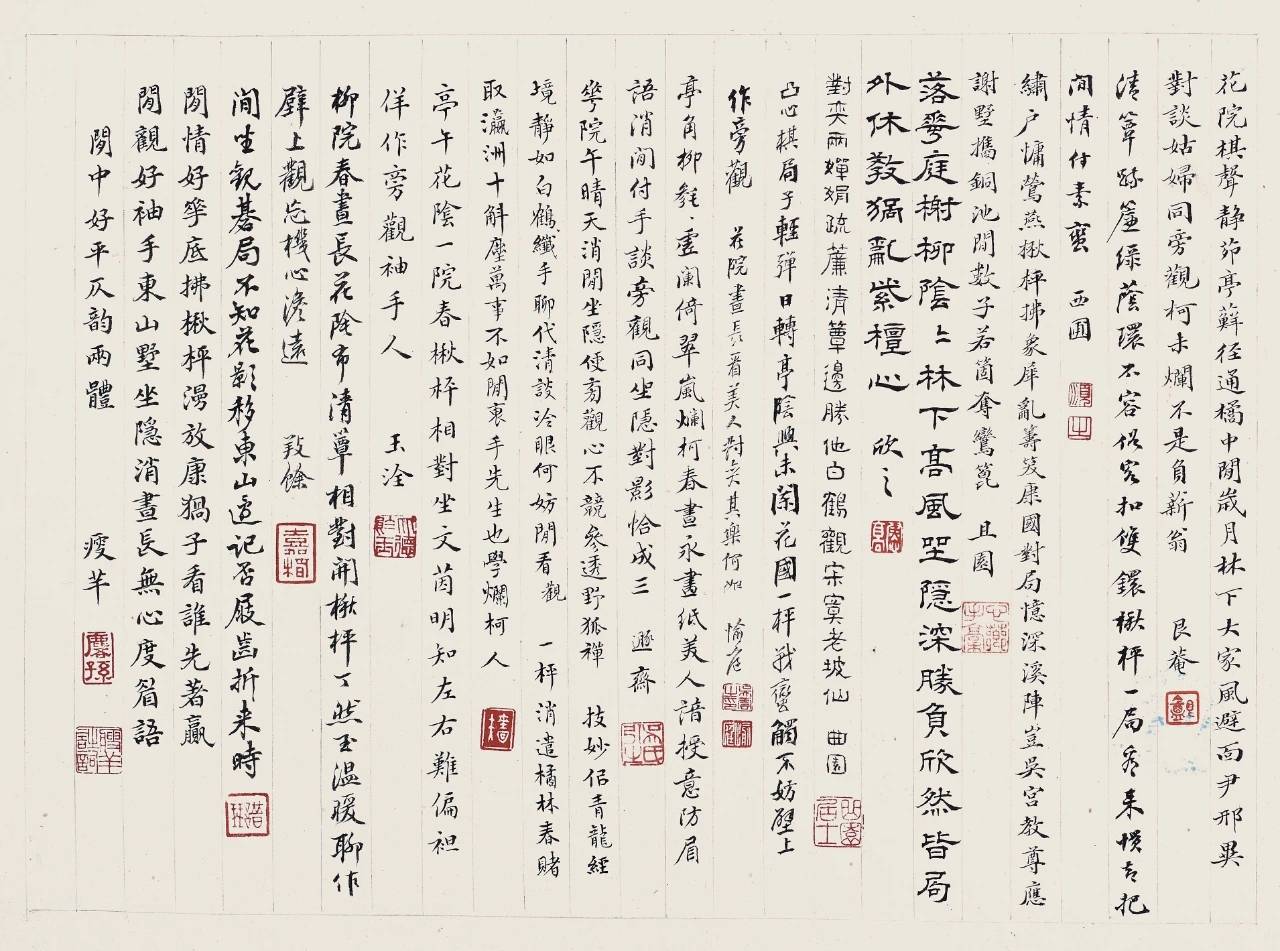 花院棋聲靜茆亭蘚徑通橘中閒歲月林下大家風避面尹邢異
對談姑婦同旁觀柯未爛不是負薪翁 艮菴
清簟疏簾綠蔭環不容俗客扣雙鐶楸枰一局看來慣且把
閒情付素蠻 西圃
繡戶慵鶯燕楸枰拂象犀亂籌笈康國對局憶深溪陣豈吳宮教尊應
謝墅攜銅池閒數子若箇奪鸞篦 且園
落花庭榭柳陰陰林下高風坐隱深勝負欣然皆局
外休教猧亂紫檀心 欣之
對奕兩嬋娟疏簾清簟邊勝他白鶴觀寂寞老坡仙 曲園
凸心棋局子輕彈日轉亭陰興未闌花國一枰戰蠻觸不妨壁上
作旁觀 花院晝長看美人對奕其樂何如 愉庭
亭角柳毿毿虛闌倚翠嵐爛柯春晝永畫紙美人諳授意防眉
語消閒付手談旁觀同坐隱對影恰成三 遯齋
花院午晴天消閒坐隱便旁觀心不競參透野狐禪 技妙侶青龍經
境靜如白鶴纖手聊代清談冷眼何妨閒看觀 一枰消遣橘林春賭
取瀛洲十斛塵萬事不如閒袖手先生也學爛柯人
亭午花陰一院春楸枰相對坐文茵明知左右難偏袒
佯作旁觀袖手人 玉淦
柳院春晝長花陰布清簟相對開楸枰丁然玉溫暖聊作
壁上觀忘機心澹遠 敤餘
閒坐觀棊局不知花影移東山逭記否屐齒折來時
閒情好花底拂楸枰漫放康猧子看誰先著贏
閒觀好袖手東山墅坐隱消晝長無心度眉語
閒中好平仄韵兩體 瘦羊